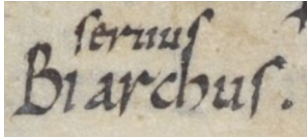 seruus
Biarchus.